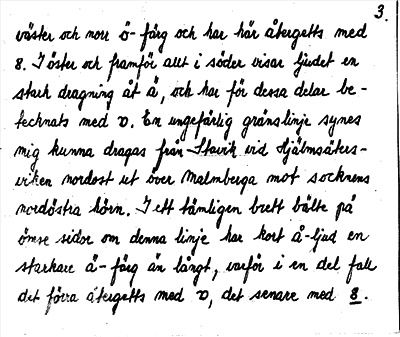 3.
väster och norr ö- färg och har här återgetts med
8. I öster och framför allt i söder visar ljudet en
stark dragning åt ä, och har för dessa delar be-
tecknats med v. En ungefärlig gränslinje synes
mig kunna dragas från Stavik vid Hjälmsäters-
viken nordost ut över Malmberga mot socknens
nordöstra hörn. I ett tämligen brett bälte på
ömse sidor om denna linje har kort å-ljud en
starkare ä- färg än långt, varför i en del fall
det förra återgetts med v, det senare med 8.